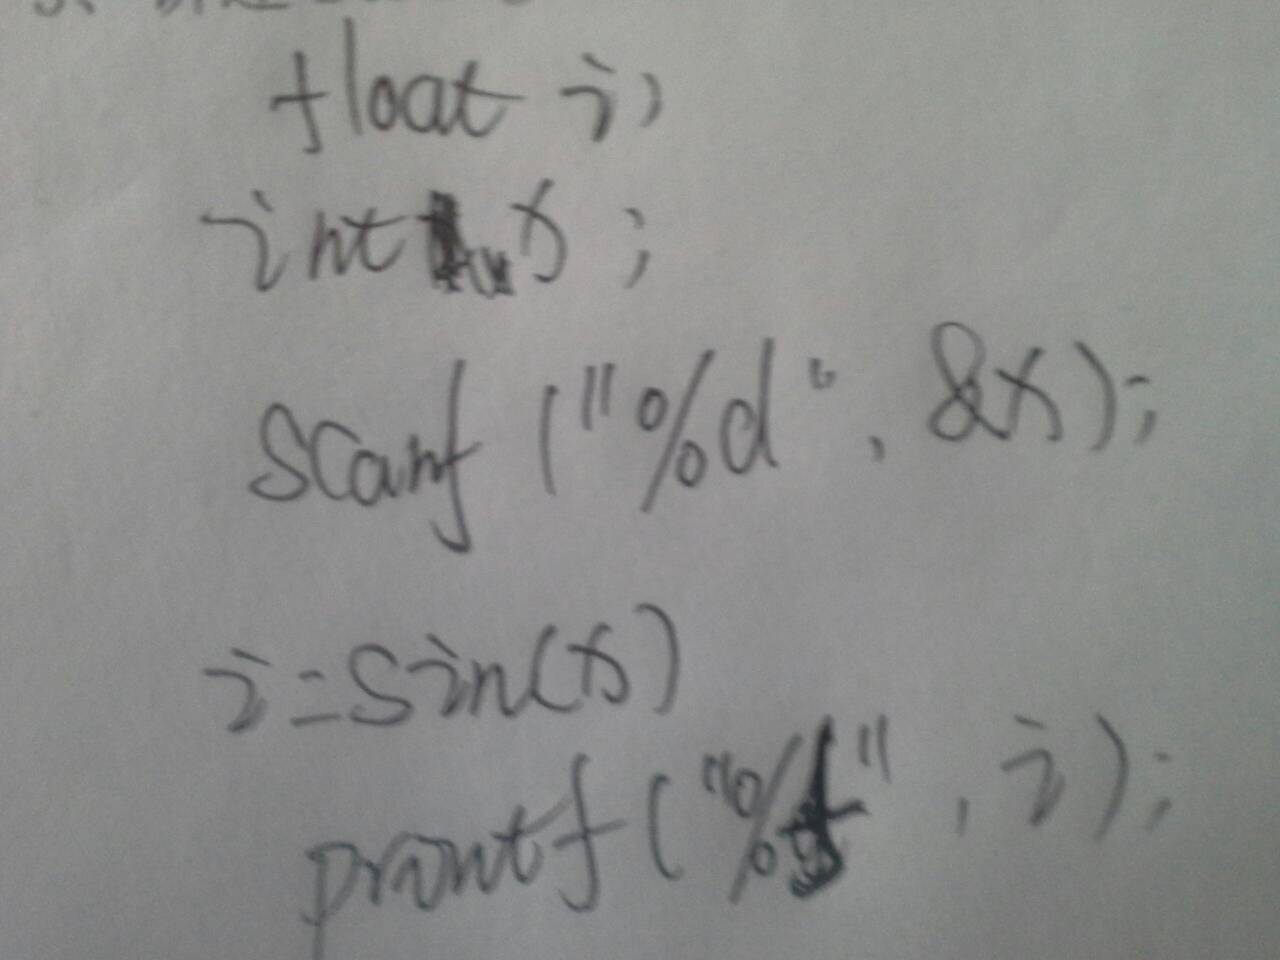 float i;
int x;
scanf("%d", &x);
i=sin(x)
printf("%f", i);